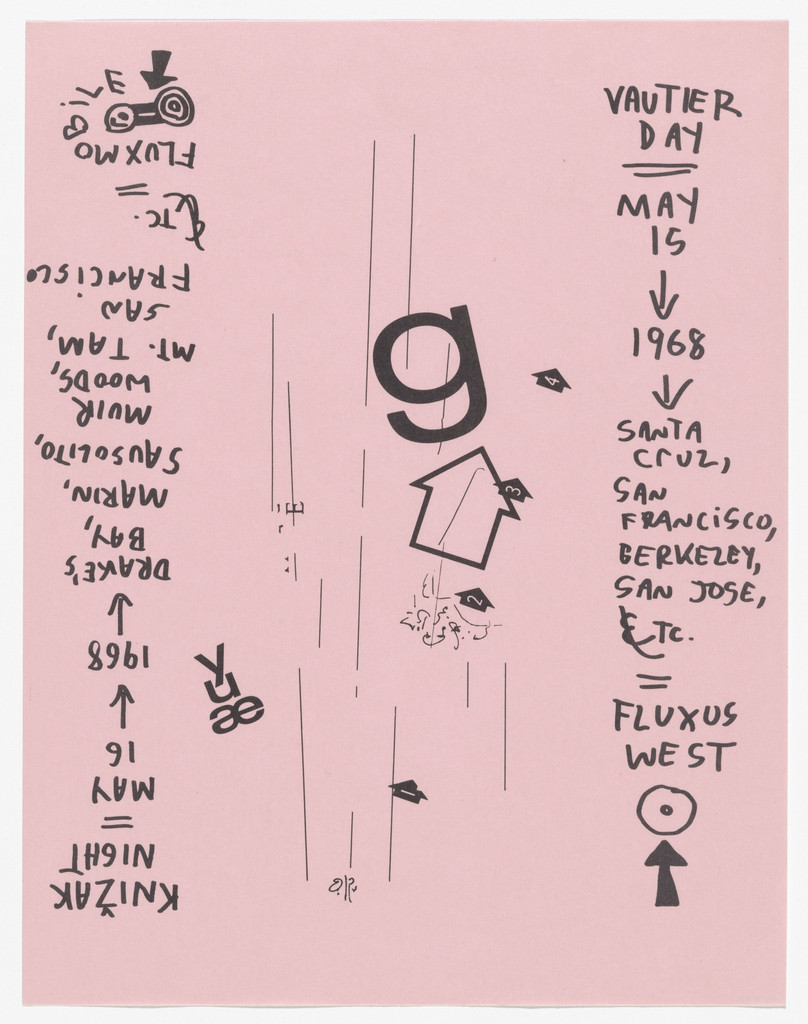 VAUTIER
DAY
MAY
15
1968
SANTA
CRUZ,
SAN
FRANCISCO,
BERKELEY,
SAN JOSE,
ETC.
=
FLUXUS
WEST
KNIŽAK
NIGHT
=
MAY
16
1968
DRAKE'S
BAY,
MARIN,
SAUSOLITO,
MUIR
WOODS,
MT. TAM,
SAN
FRANCISCO
ETC.
=
FLUXMO
BILE
g
4
3
2
1
y
u
æ